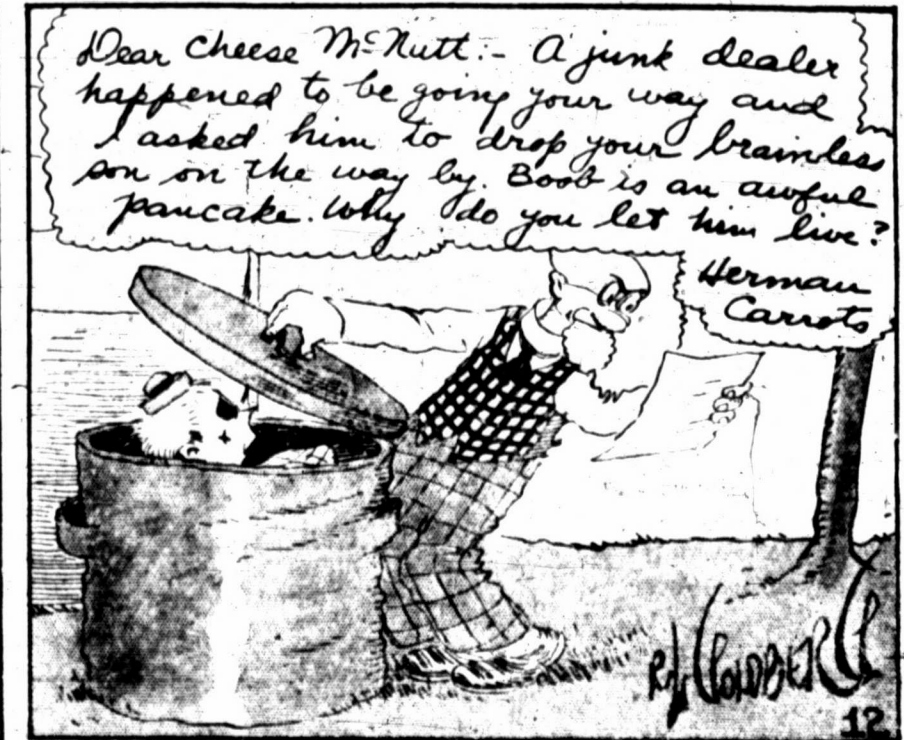 Dear Cheese McNutt:- A junk dealer
happened to be going your way and
I asked him to drop your brainless
son on the way by. Boob is an awful
pancake. Why do you let him live?
Herman
Carrots
R.L. GOLDBERG
12